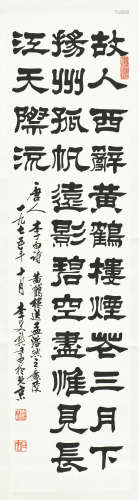 故人西辭黃鶴樓煙花三月下
揚州孤帆遠影碧空盡惟見長
江天際流
唐人李太白詩黃鶴樓送孟浩然之廣陵
一九七五年十月李書於北京